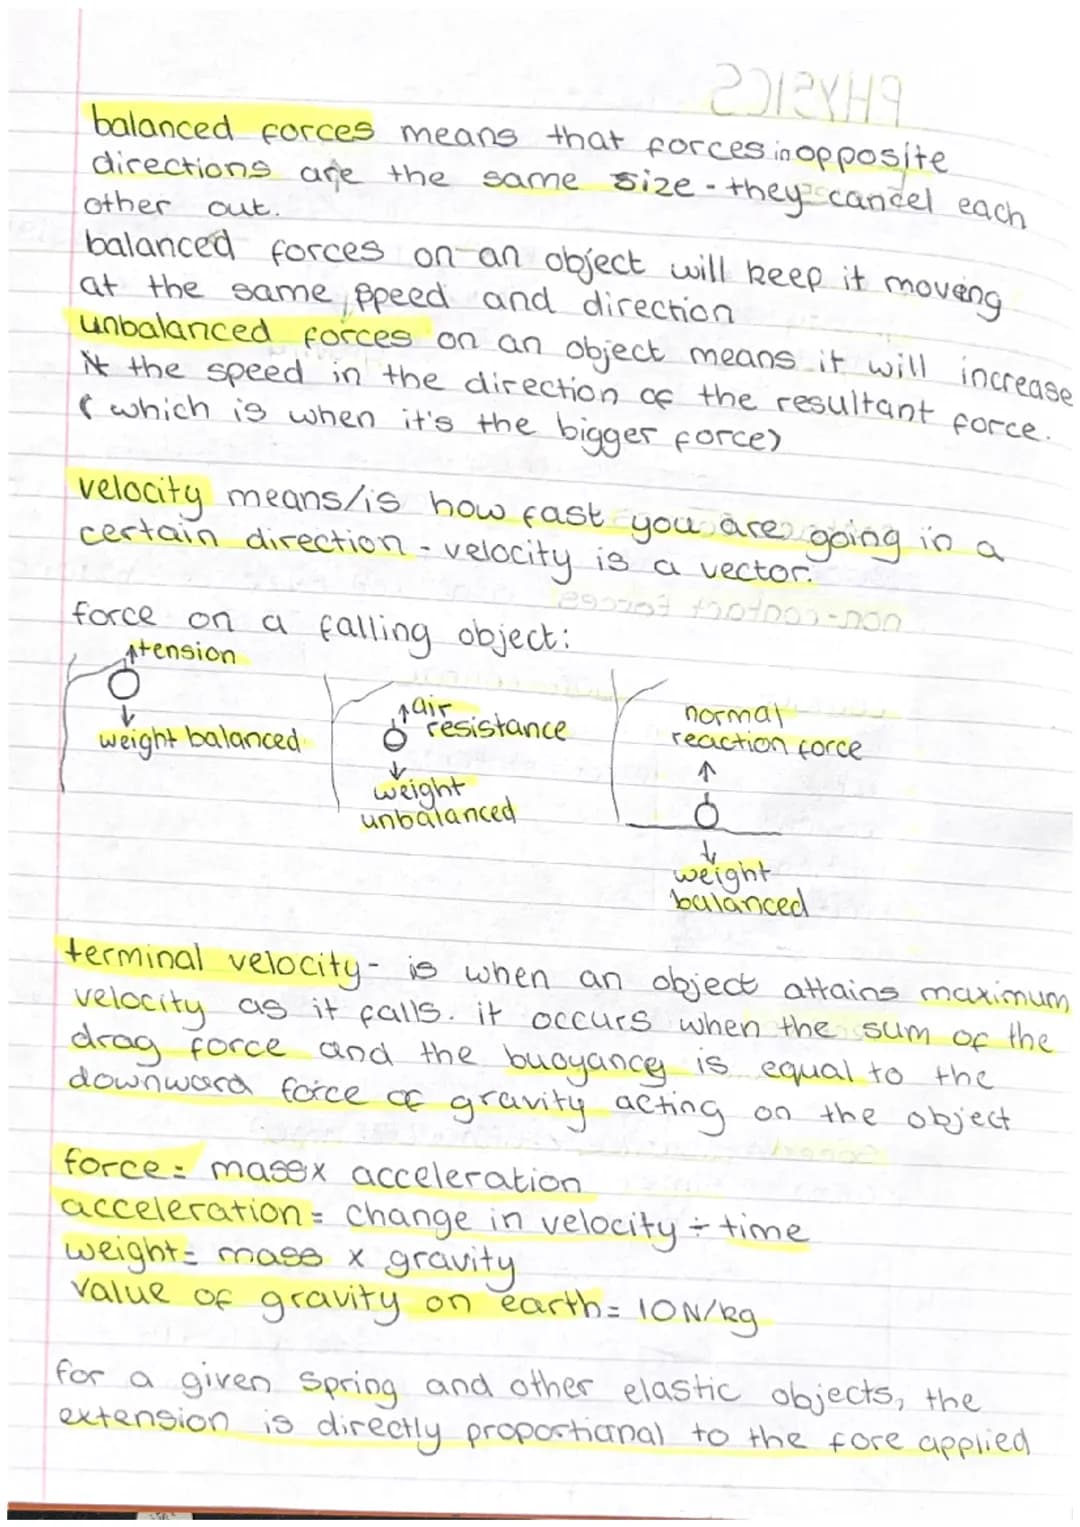 PHYSICS
balanced forces means that forces in opposite
directions are the same size - they cancel each
other out.
balanced forces on an object will keep it moving
at the same speed and direction
unbalanced forces on an object means it will increase
it the speed in the direction of the resultant force.
(which is when it's the bigger force)
velocity means/is how fast you are going in a
certain direction - velocity is a vector.
non-contact forces
force on a falling object:
tension
weight balanced
air
resistance
weight
unbalanced
normal
reaction force
weight
balanced
terminal velocity - is when an object attains maximum
velocity as it falls. it occurs when the sum of the
drag force and the buoyancy is equal to the
downward force of gravity acting on the object
force = mass x acceleration
acceleration = change in velocity ÷ time
weight = mass x gravity
value of gravity on earth = 10N/kg
for a given spring and other elastic objects, the
extension is directly proportional to the fore applied